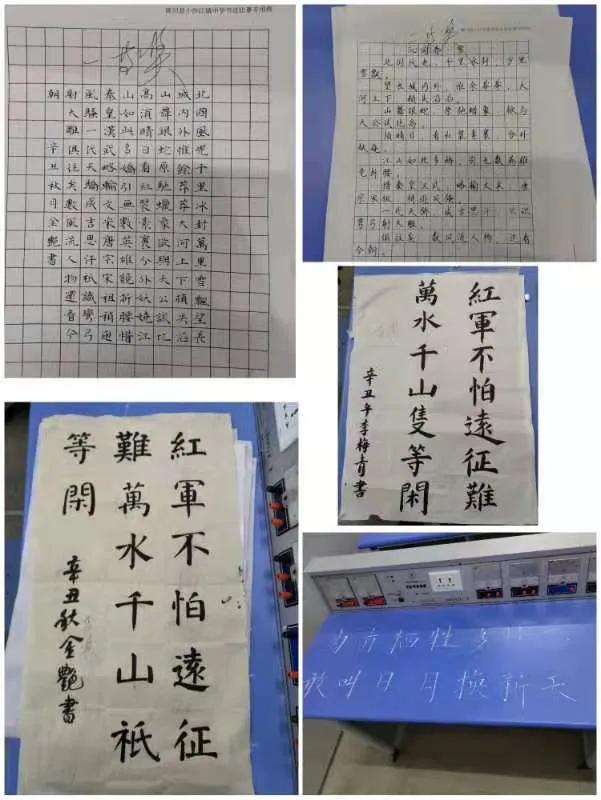 一等奖
北國風光千里冰封萬里雪飄望長
城内外惟餘莽莽大河上下頓失滔
山舞銀蛇原馳蠟象欲與天公試比
高須晴日看紅裝素裹分外妖嬈江
山如此多嬌引無數英雄競折腰惜
秦皇漢武略輸文采唐宗宋祖稍遜
風騷一代天驕成吉思汗祇識彎弓
射大雕俱往矣數風流人物還看今
朝 辛丑秋月金艷書
一等奖
沁园春 雪
北国风光，千里冰封，万里
雪飘。
望长城内外，惟余莽莽，大
河上下，顿失滔滔。
山舞银蛇，原驰蜡象，欲与
天公试比高。
须晴日，看红装素裹，分外
妖娆。
江山如此多娇，引无数英雄
竞折腰。
惜秦皇汉武，略输文采，唐
宗宋祖，稍逊风骚。
一代天骄，成吉思汗，只识
弯弓射大雕。
俱往矣，数风流人物，还看
今朝。
紅軍不怕遠征難
萬水千山隻等閑
辛丑年李梅青書
紅軍不怕遠征
難萬水千山祇
等閑 辛丑秋金艷書
为有牺牲多
敢叫日月换新天